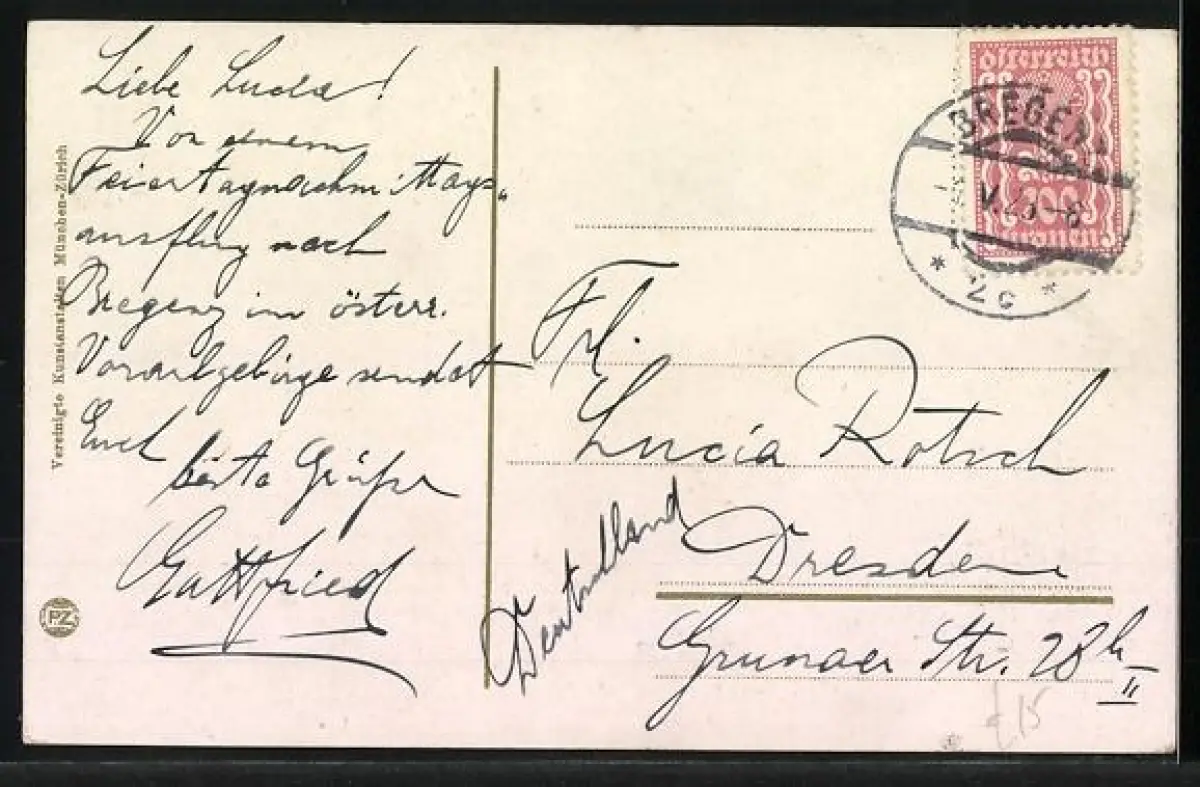 Liebe Lucia!
Von einem
Feiertagnachm:ttags-
ausflug nach
Bregenz im österr.
Vorarlgebirge sendet
Euch
beste Grüße
Gottfried
Vereinigte Kunstanstalten München-Zürich
PZ
österreich
Kronen
BREGENZ
V.23-8
* 2c *
Frl.
Lucia Rotsch
Dresden
Grunaer Str. 28
II
Deutschland
£15